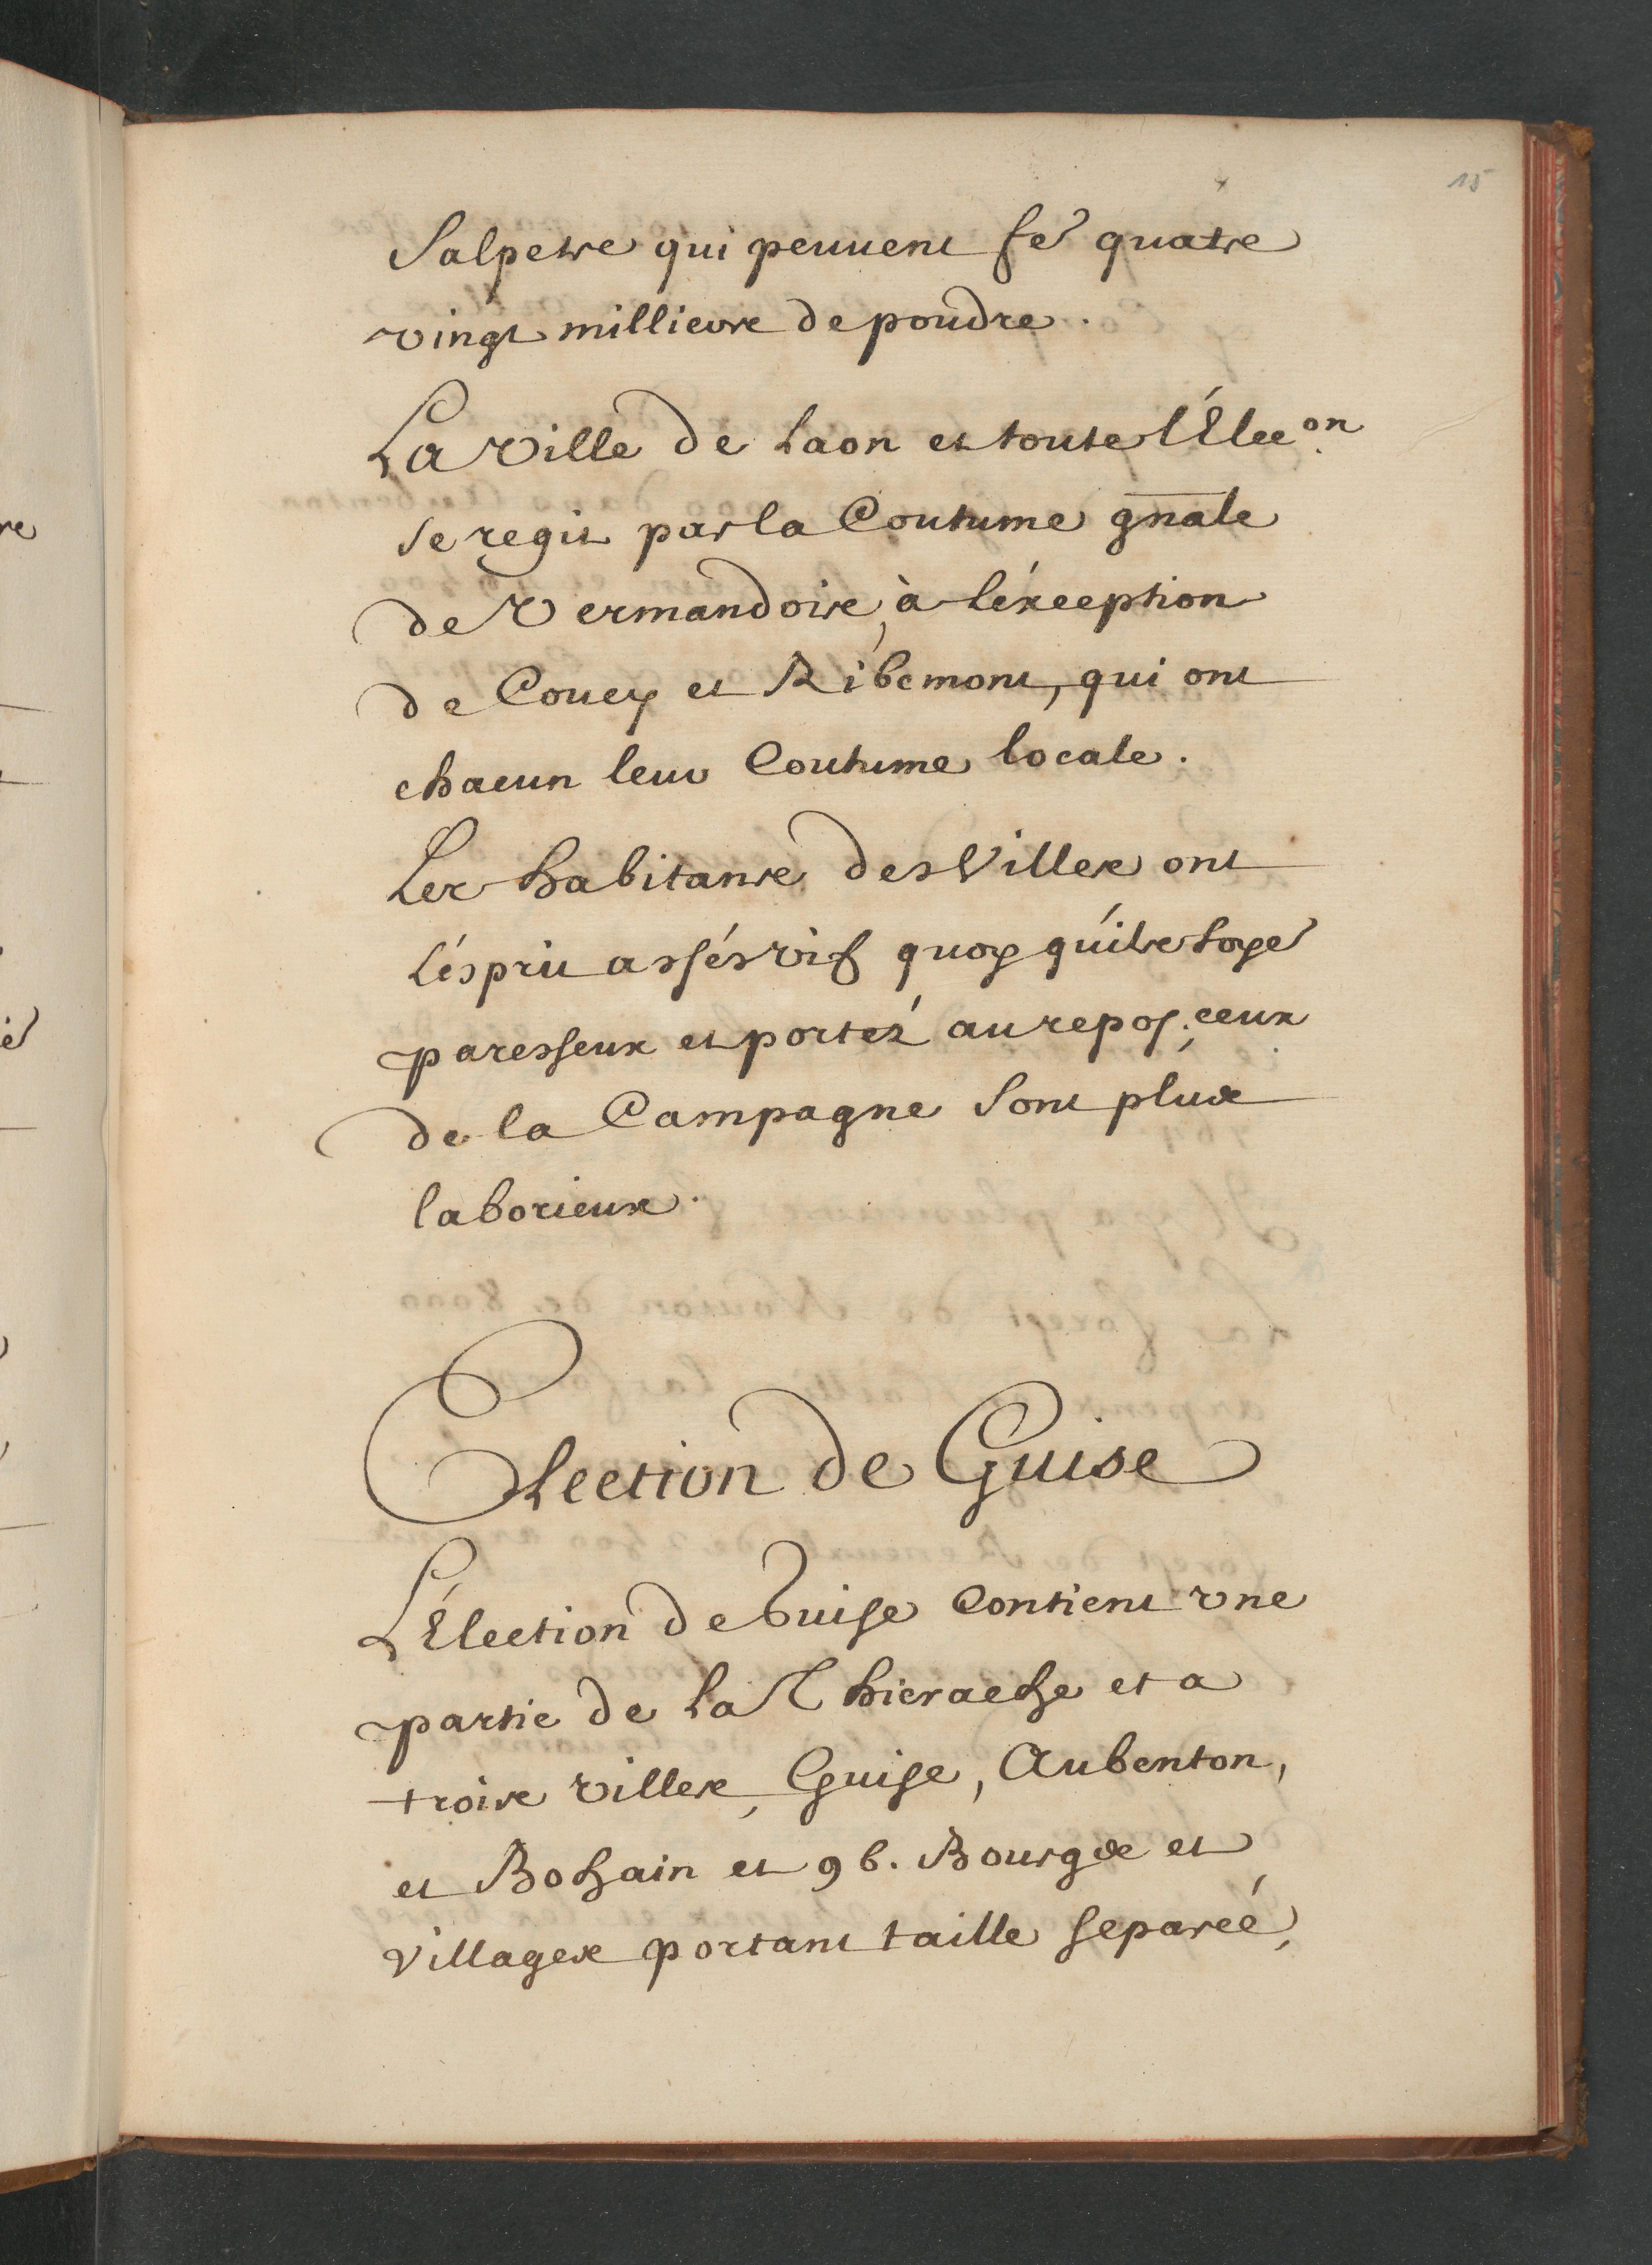 15
Salpetre qui peuuent fe quatre
vingt milliers de poudre.
La Ville de Laon et toute l'Elec.on
se regit par la Coutume gnale
de Vermandois, à léxception
de Coucy et Ribemont, qui ont
chacun leur Coutume locale.
Les habitans des Villes ont
L'ésprit assés vif quoy qu'ils soye
paresseux et portez au repos; ceux
de la Campagne Sont plus
laborieux.
Election de Guise
L'Election de Guise Contient vne
partie de La Thierache et a
trois villes, Guise, Aubenton,
et Bohain et 96. Bourgs et
Villages portant taille separeé,